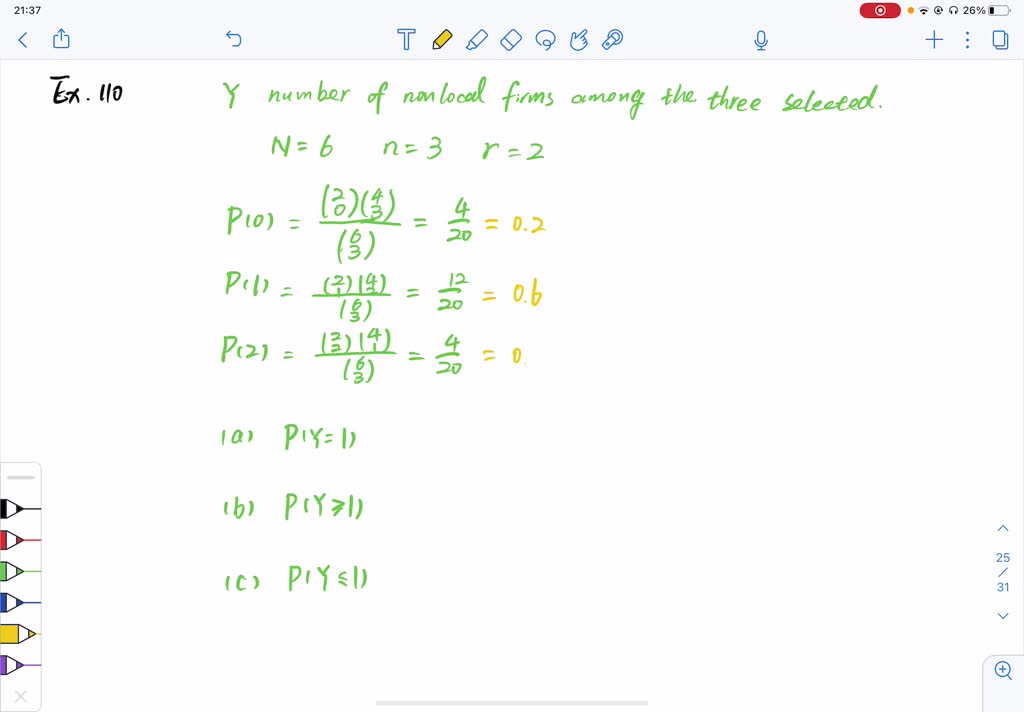 21:37
26%
Ex. 110
Y number of nonlocal firms among the three selected.
N = 6 n = 3 r = 2
P(0) = (2 0)(4 3) / (6 3) = 4/20 = 0.2
P(1) = (2 1)(4 2) / (6 3) = 12/20 = 0.6
P(2) = (2 2)(4 1) / (6 3) = 4/20 = 0.
(a) P(Y=1)
(b) P(Y≥1)
(c) P(Y≤1)
25
/
31